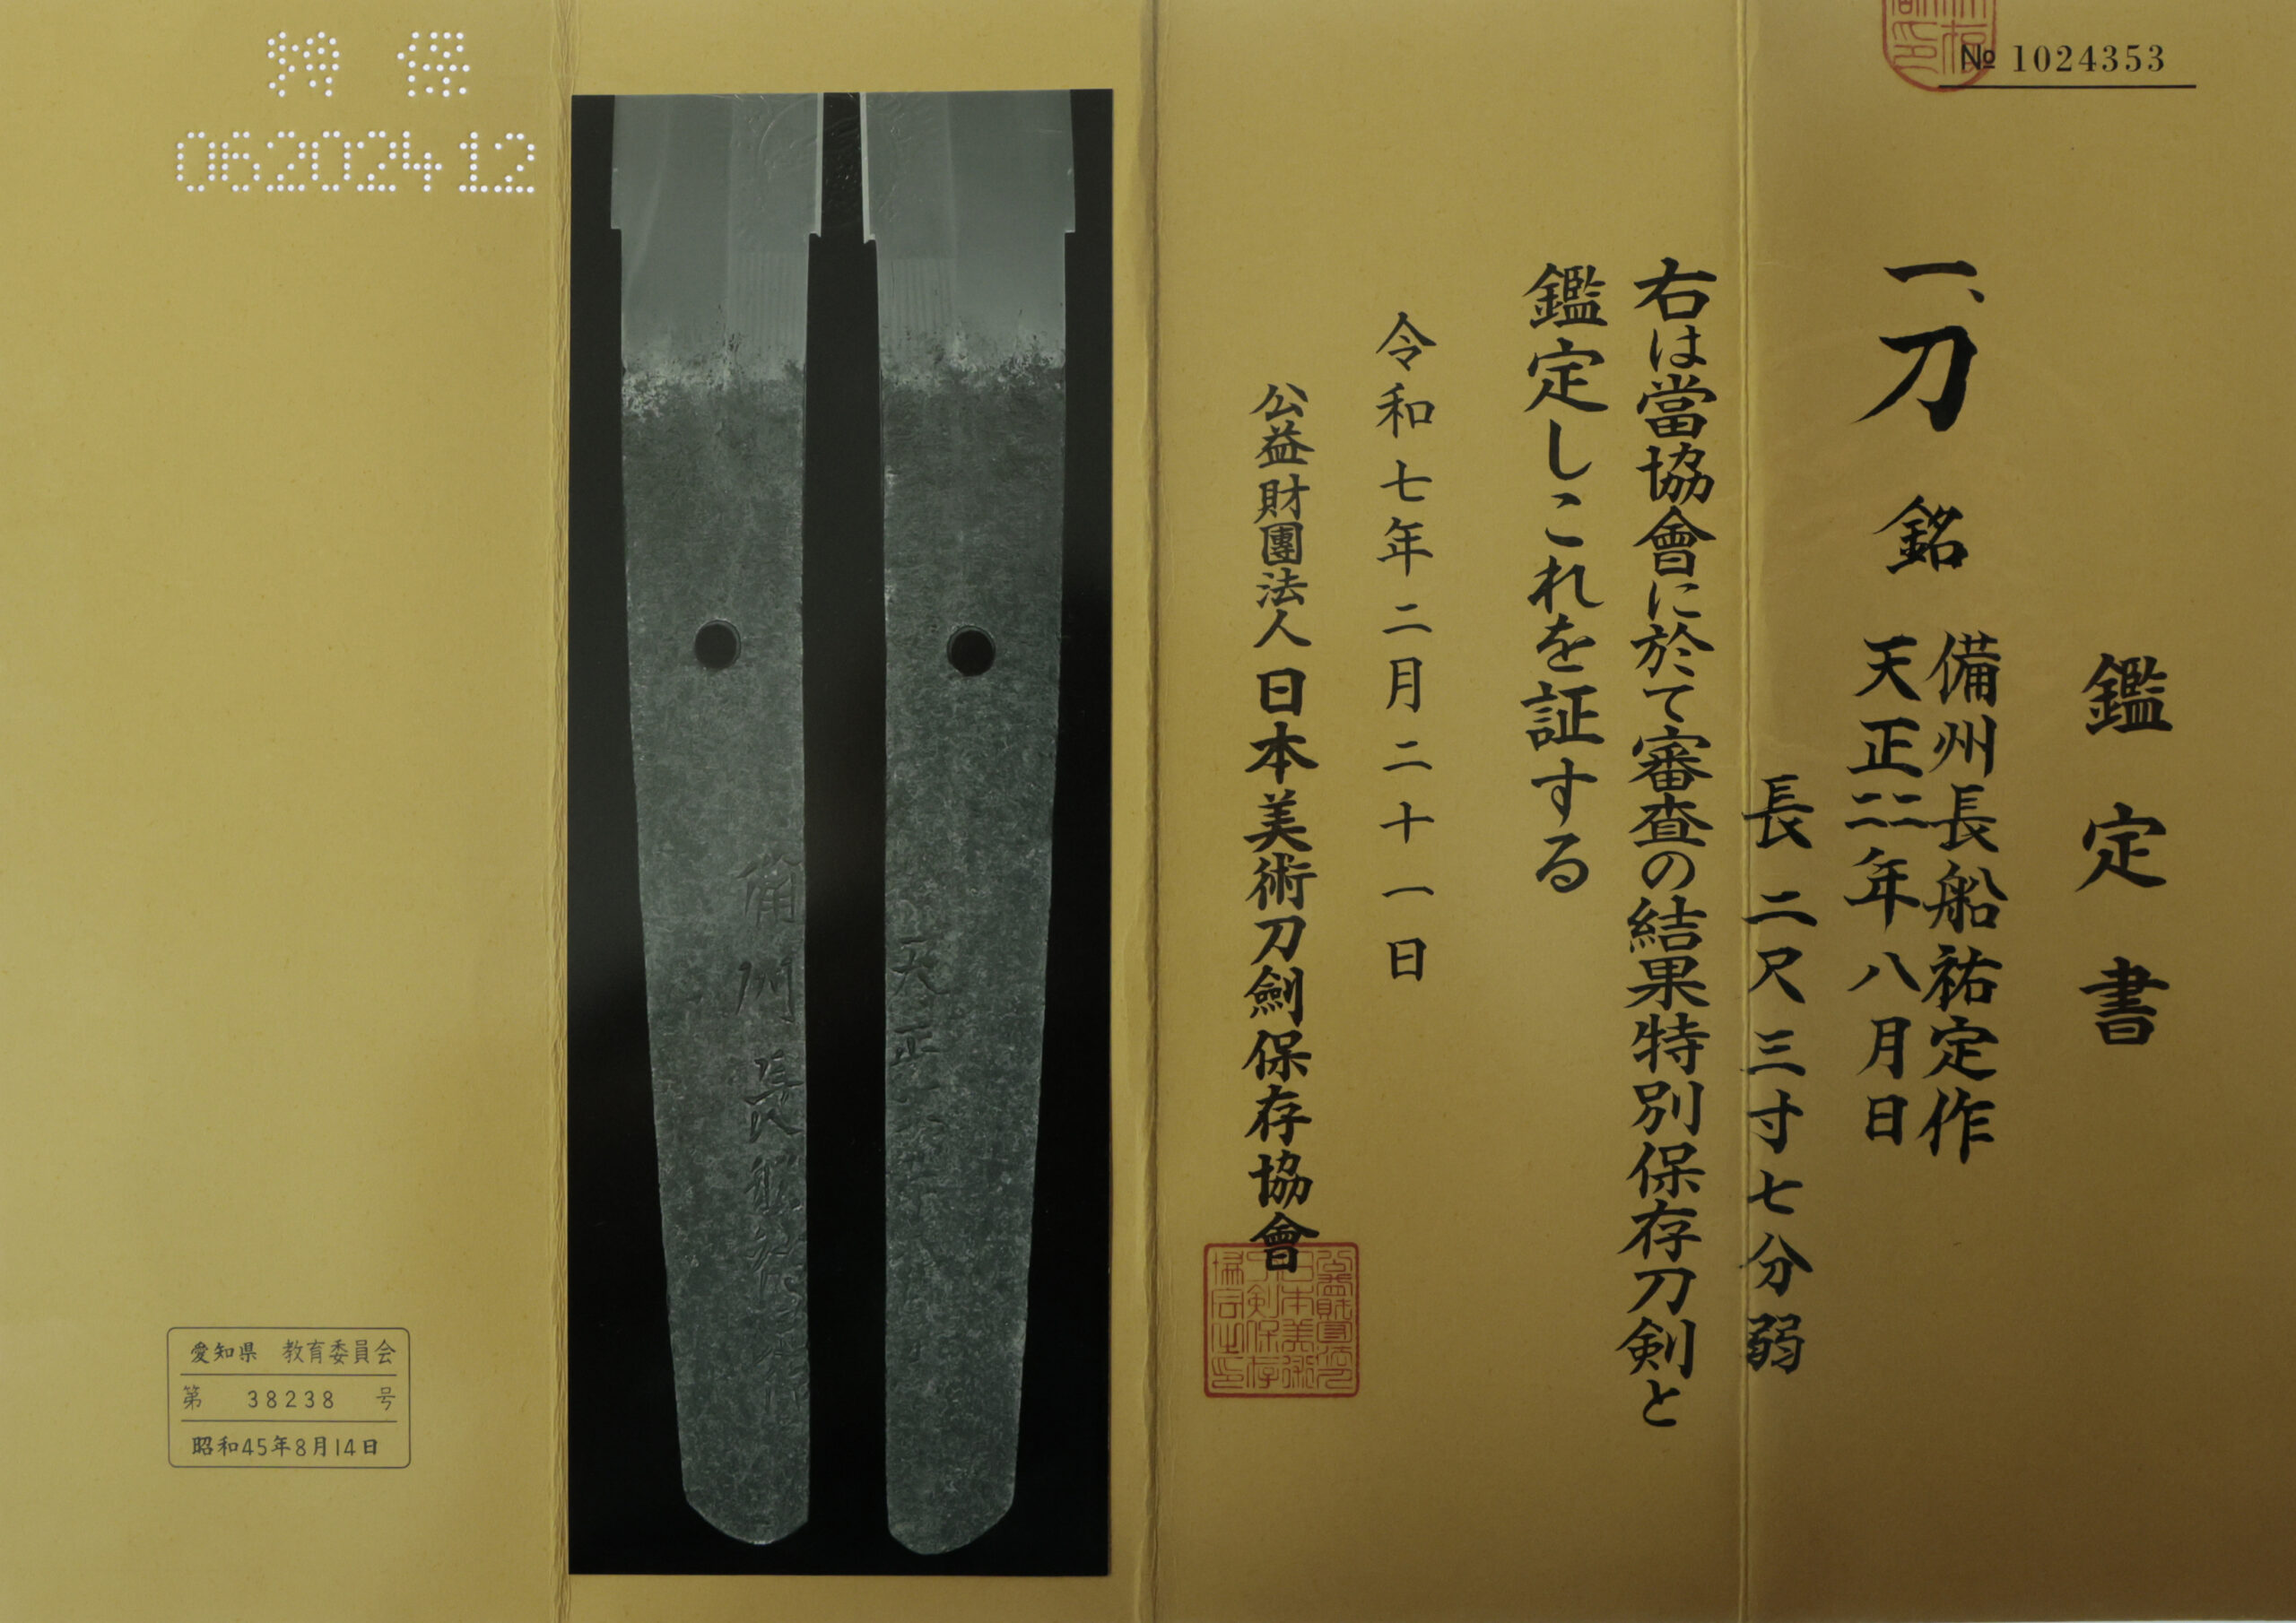 № 1024353
鑑定書
一、刀 銘 備州長船祐定作
天正二二年八月日
長二尺三寸七分弱
右は當協會に於て審査の結果特別保存刀剣と
鑑定しこれを証する
令和七年二月二十一日
公益財團法人日本美術刀劍保存協會
特保
06202412
備州長船祐定作
天正
愛知県 教育委員会
第 38238 号
昭和45年8月14日